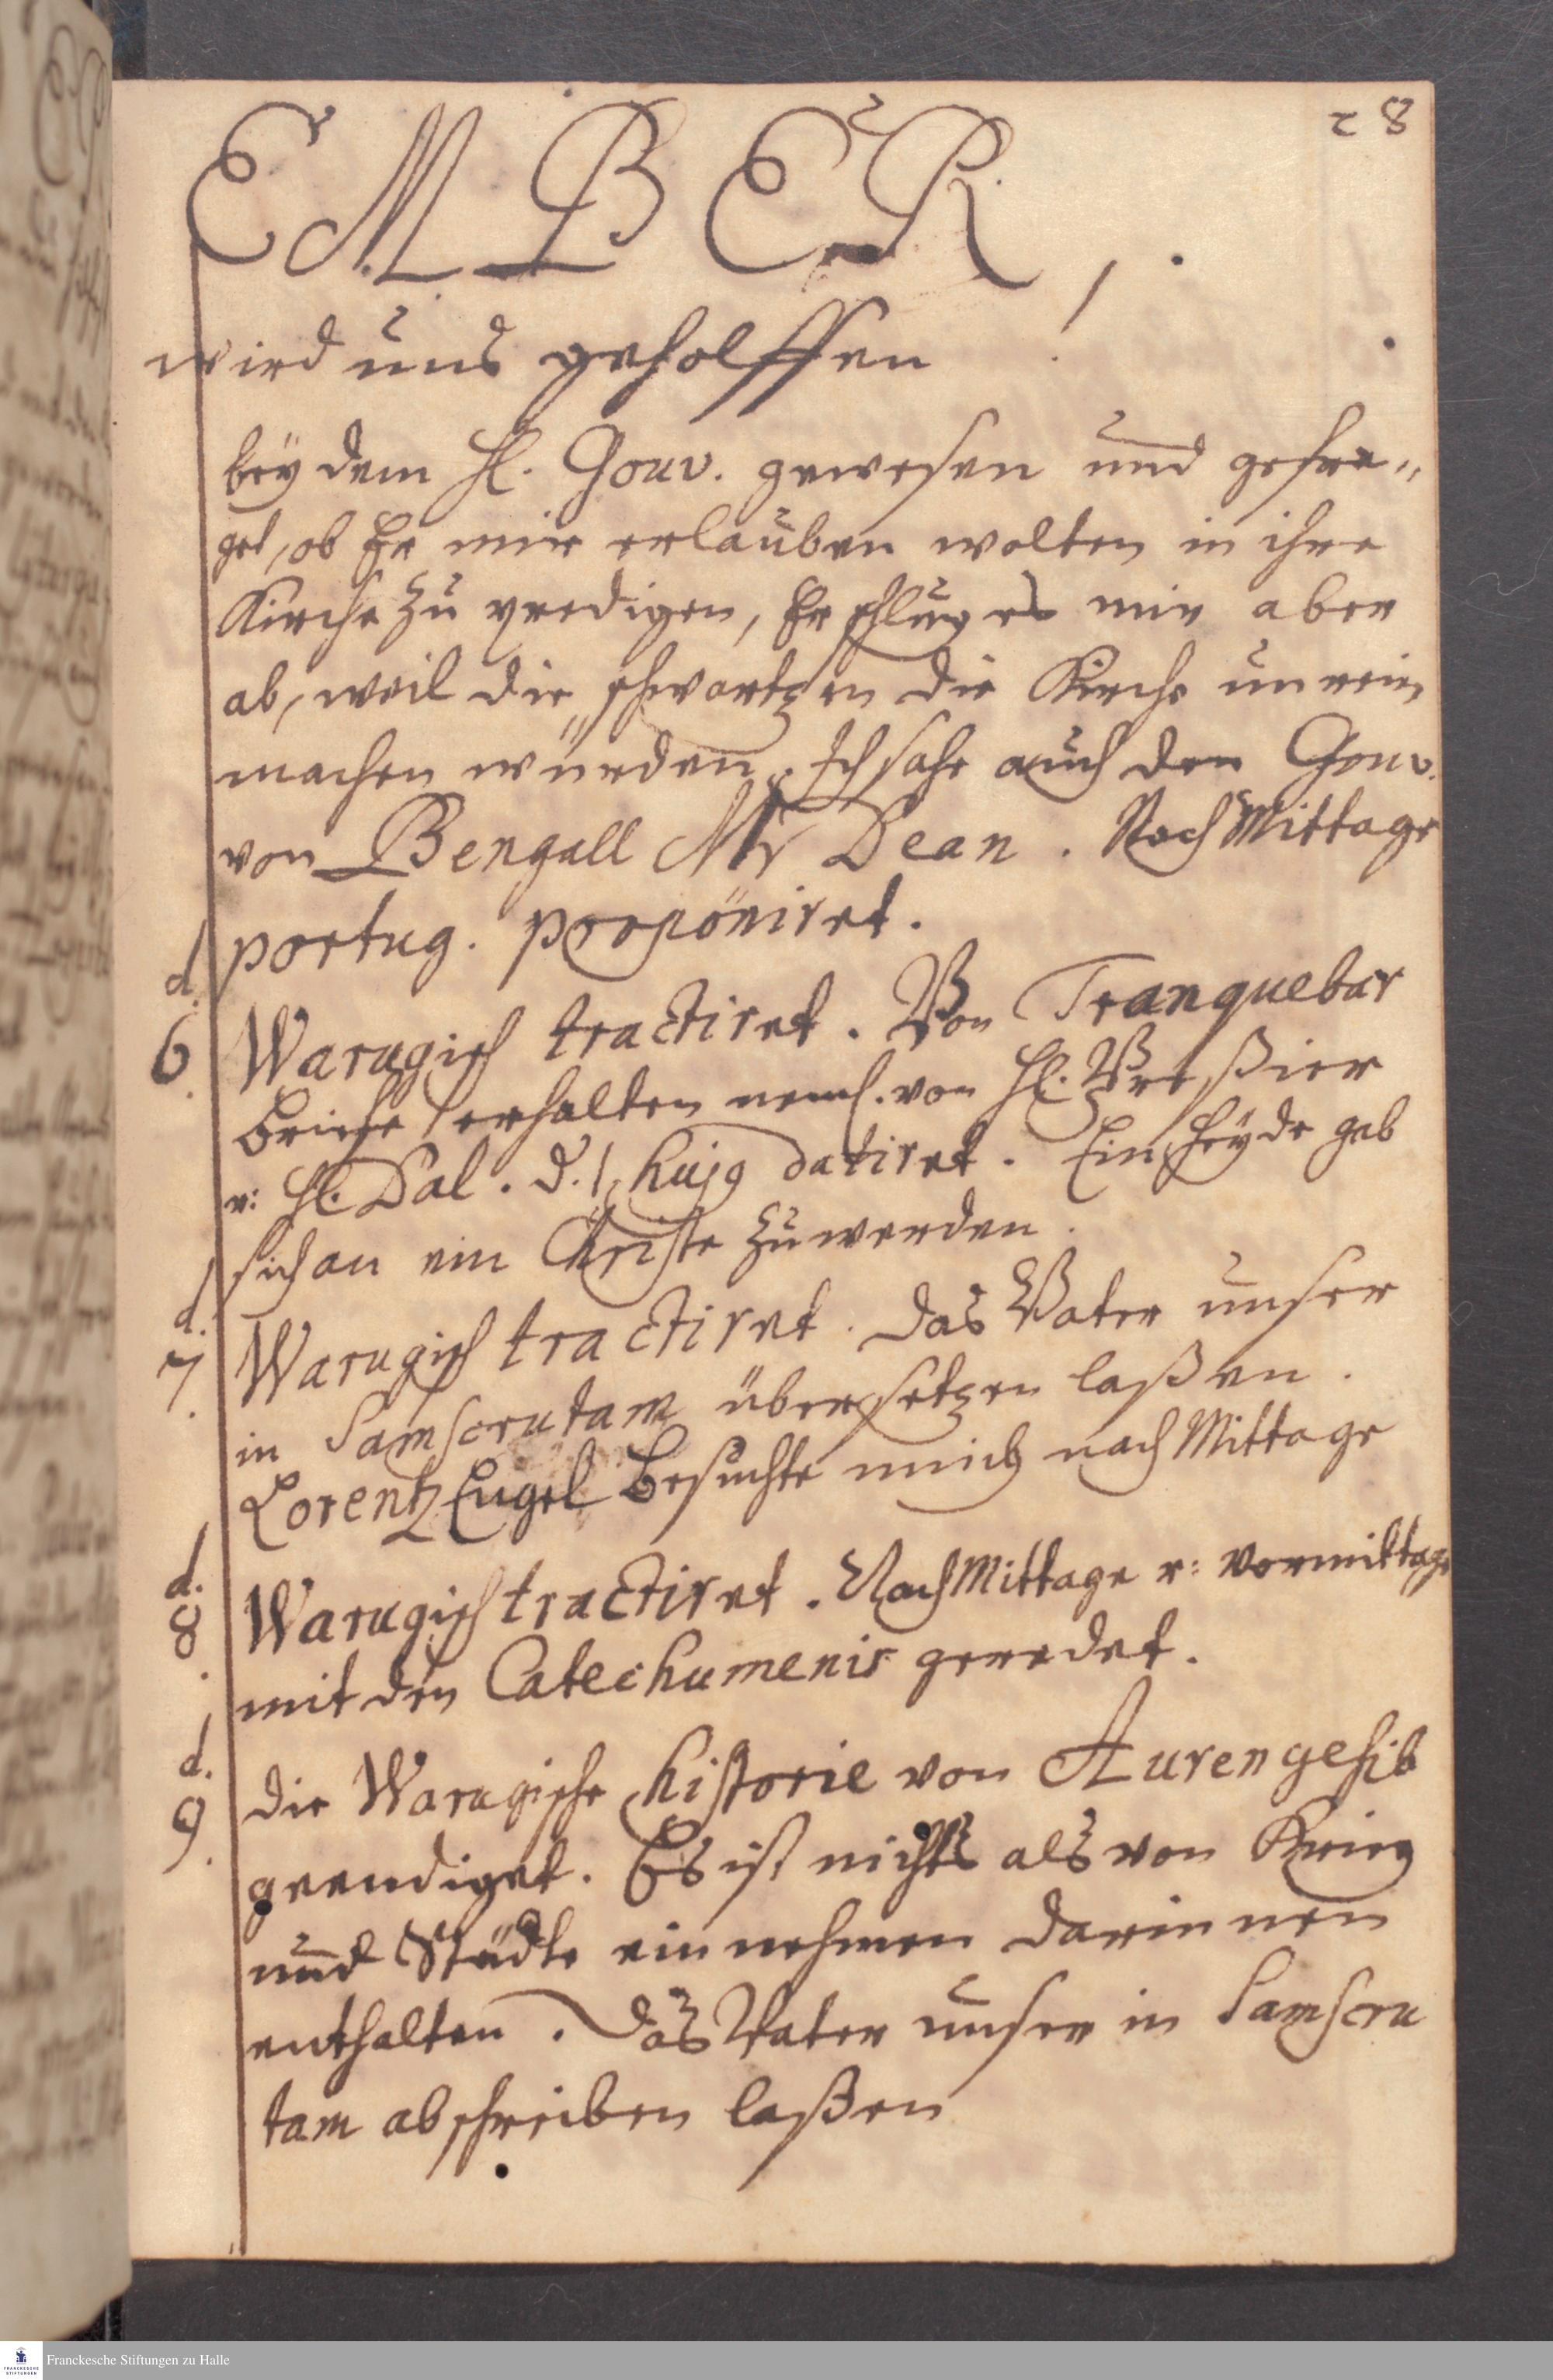 28
EMBER,.
wird uns geholffen
bey dem H. Gouv. gewesen und gefra„
get, ob Er mir erlauben wolten in ihre
Kirche zu predigen, Er schlug es mir aber
ab, weil die schwartzen die Kirche unrein
machen würden. Ich sahe auch den Gouv.
von Bengall Mr Dean. Nach Mittage
portug. proponiret.
d.
6. Warugisch tractiret. Von Tranquebar
briefe erhalten neml. von H. Preßier
u: H. Dal. d. 1. hujg datiret. Ein Heyde gab
sich an ein Christe zu werden.
d.
7. Warugisch tractiret. Das Vater unser
in Samscrutam übersetzen laßen.
Lorentz Engel besuchte mich nach Mittage
d.
8. Warugisch tractiret. Nach Mittage u: vormittage
mit den Catechumenis geredet.
d.
9. die Warugische historie von Aurengehib
geendiget. Es ist nichts als von Krieg
und Städte ein nehmen darinnen
enthalten. Das Vater unser in Samscru
tam abschreiben laßen
FRANCKESCHE STIFTUNGEN
Franckesche Stiftungen zu Halle